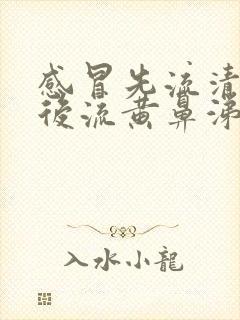 感冒先流清
後流黄鼻涕
入水小龍